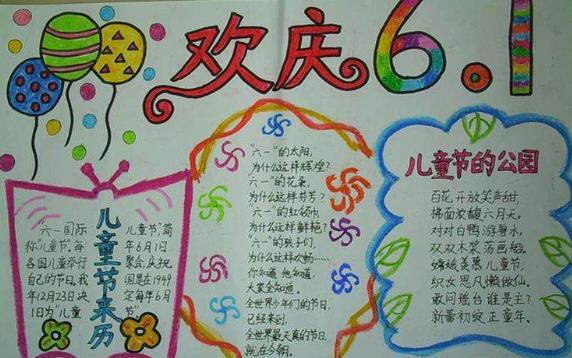 欢庆6.1
儿童节来历
六一国际
称"儿童节"每
各国儿童举行
自己的节日,我
年12月23日决
1日为"儿童
儿童节"简
年6月1日
聚会,庆祝
国是在1949
定每年6月
节"
"六一"的太阳,
为什么这样辉煌?
"六一"的花朵,
为什么这样芬芳?
"六一"的红领巾
为什么这样鲜艳?
"六一"的孩子们,
为什么这样欢畅……
你知道 他知道
大家全知道.
全世界少年们的节日,
已经来到,
全世界最天真的节日,
就在今朝.
儿童节的公园
百花开放笑声甜
拂面浓馥六月天。
对对白鸭游碧水,
双双木桨荡画船。
嫦娥羡慕儿童节,
织女思凡懒做仙。
敢问瑶台谁是主?
新蕾初绽正童年。